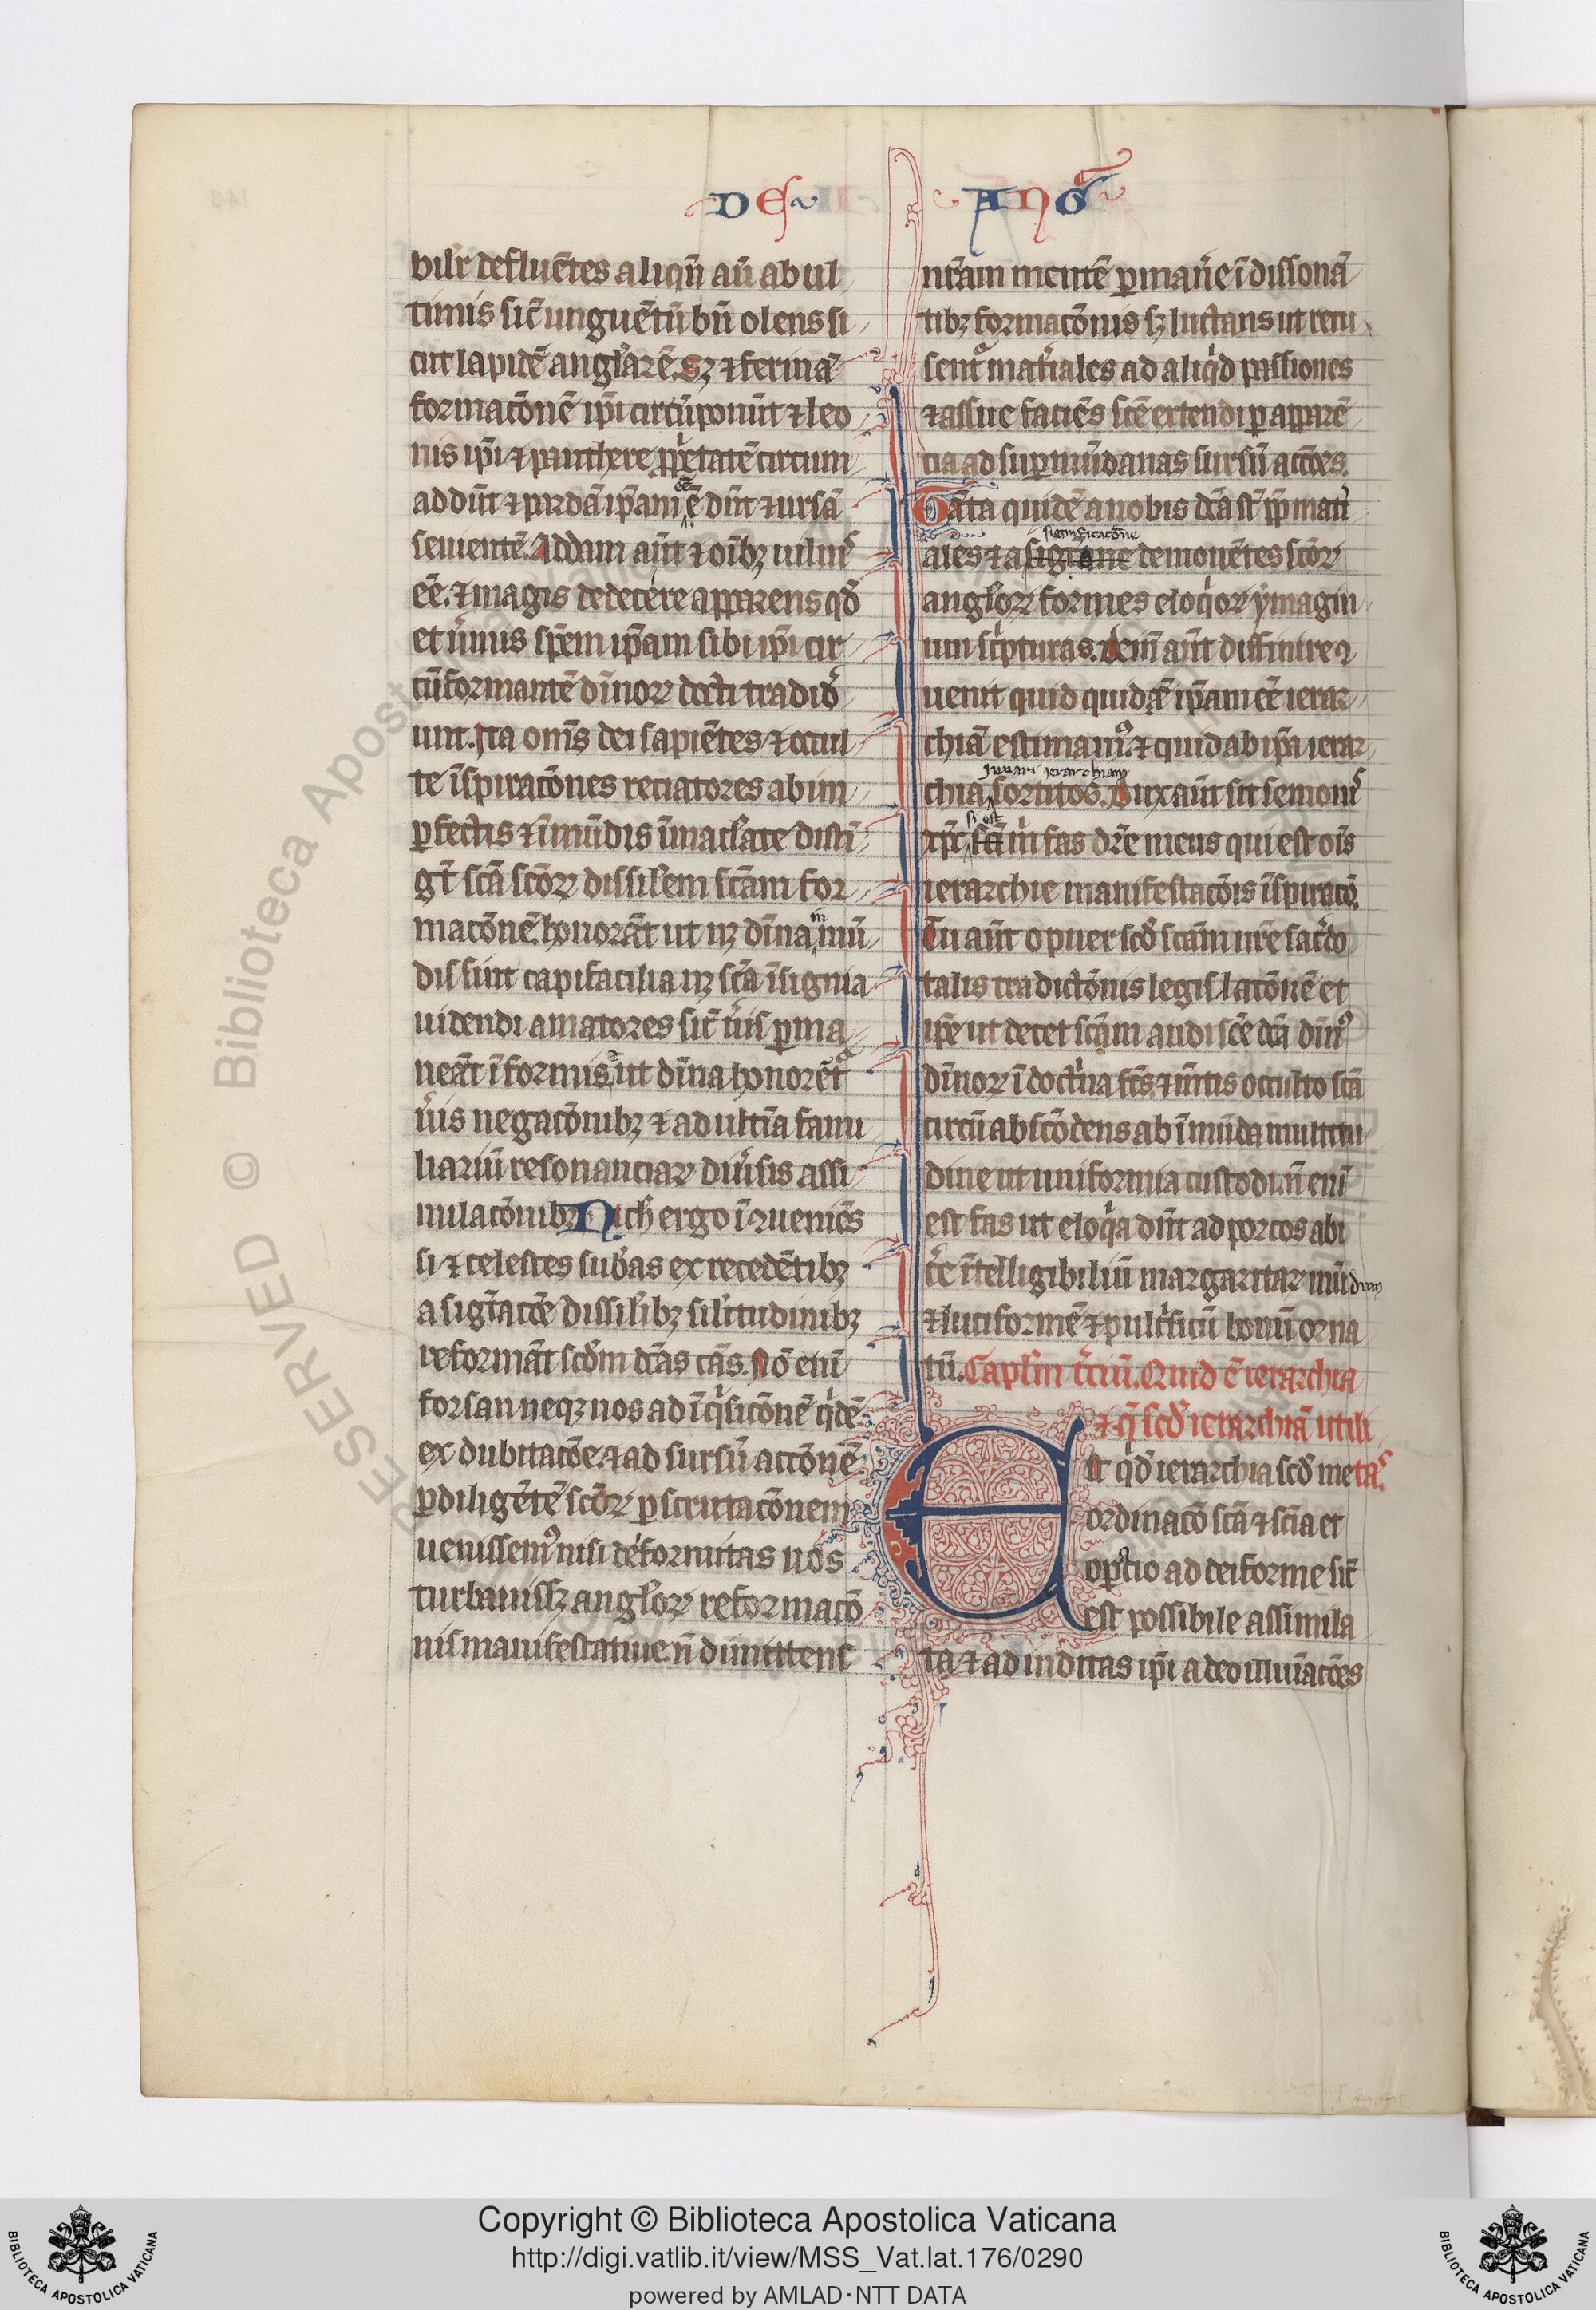 DE ANG̃
bil'r defluẽtes aliqñ aũ ab ul
timis sic̃ unguẽtũ bñ olens si
cut lapidẽ angl'arẽ. Sʒ ⁊ ferinã
formacõnẽ ip̃i circũponũt ⁊ leo
nis ip̃i ⁊ panthere ꝓp'etatẽ circum
addũt ⁊ pardã ip̃am eẽ dñt ⁊ ursã
seuientẽ. Addam aũt ⁊ oĩbʒ uiliuˢ
eẽ. ⁊ magis dedecere apparens qđ
et u'mis sp̃em ip̃am sibi ip̃i cir
cũformantẽ diĩnoꝝ docti tradid'
unt. Ita om̃s dei sapiẽtes ⁊ occul
te ĩspiracõnes reciatores ab im
ꝑfectis ⁊ ĩmũdis ĩmacl'ate disti
gũt scã scõꝝ dissil'em scãm for
macõnẽ honorãt ut nʒ diĩna inmũ
dis sint capi facilia nʒ scã ĩsignia
uidendi amatores sic̃ u'is ꝑma
neãt ĩ formis. ut diĩna honorẽt'
u'is negacõnibʒ ⁊ ad ultĩa fami
liariũ resonanciaꝝ diu'sis assi
mulacõnibʒ Nich' ergo ĩꝯueniẽs
si ⁊ celestes sub'as ex recedẽtibʒ
a sig'tacõe dissil'ibʒ sil'itudinibʒ
reformãt scđm dc̃as cãs. Nõ eni
forsan neqʒ nos ad ĩq'sicõnẽ q'dẽ
ex dubitacõe ⁊ ad sursũ actõnẽ
ꝑ diligẽtẽ scõꝝ ꝑscrutacõnem
uenissemꝰ nisi deformitas nos
turbauissʒ angl'oꝝ reformacõ
nis manifestatiue. ñ dimittens
nr̃am mentẽ ꝑman'e ĩ dissonã
tibʒ formacõnis sʒ luctans ut recu
sent' mat'iales ad aliq'd passiones
⁊ assue faciẽs scẽ extendi ꝑ apparẽ
cia ad suꝑmũdanas sursũ actões.
Tãta quidẽ a nobis dc̃a st̃ ꝓp̃ mati'
significacõne
ales ⁊ a sigtone demouẽtes scõꝝ
angl'oꝝ formes eloq'oꝝ ymagin
um sc'pturas. Deiñ aũt diffinire ꝯ
uenit quid quidẽ ip̃am eẽ ierar
chiã estimamꝰ ⁊ quid ab ip̃a ierar
juuari ierarchiam
chia sortitos. Dux aũt sit sermonˢ
si est
xp̃c scã m̃ fas dr̃e meus qui est oĩs
ierarchie manifestacõis ĩspiracõ.
Tu aũt o puer scđ scãm nr̃e sac'do
talis tradictõnis legis lacõnẽ et
ip̃e ut decet scãm audi scẽ dc̃a diĩnꝰ
diĩnoꝝ ĩ doct'na fc̃s ⁊ m̃tis occulto scã
circũ abscõdens ab ĩmũda multitu
dine ut uniformia custodi. ñ eni
est fas ut eloq'a dñt ad porcos abi
c'e ĩtelligibiliũ margaritaꝝ mũdum
⁊ luciformẽ ⁊ pulc'ficũ bonũ orna
tũ. Capl'm t'ciũ. Quid ẽ ierarchia
⁊ q̃ scđ ierarchiã utili
Est qđ ierarchia scđ me tasˢ.
ordinacõ scã ⁊ scĩa et
op'tio ad deiforme sic̃
est possibile assimila
ta ⁊ ad inditas ip̃i a deo illuĩacões
Copyright © Biblioteca Apostolica Vaticana
http://digi.vatlib.it/view/MSS_Vat.lat.176/0290
powered by AMLAD·NTT DATA
BIBLIOTECA APOSTOLICA VATICANA
BIBLIOTECA APOSTOLICA VATICANA